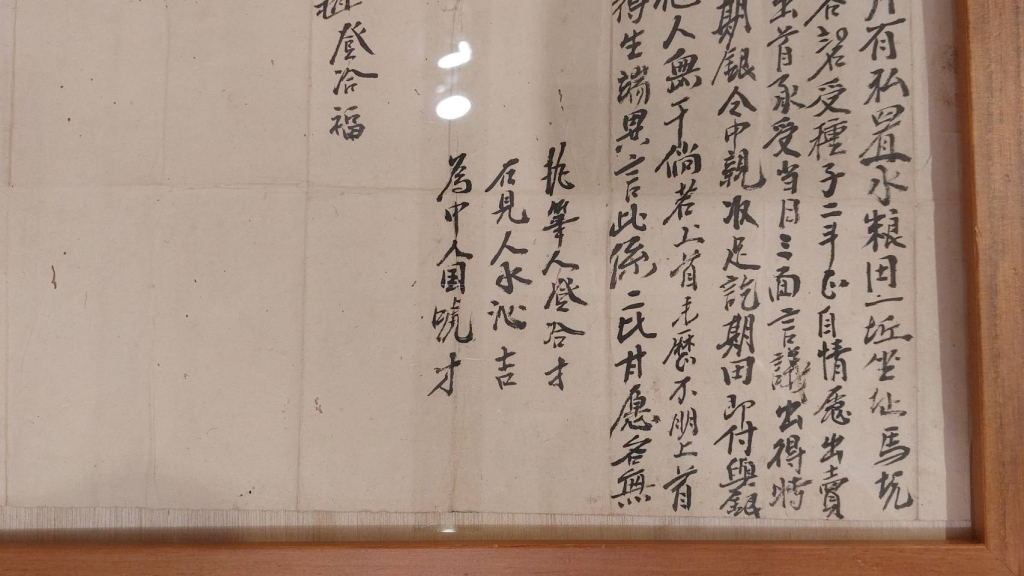 有弘置水粮田一坵坐址馬坑
名受種子二斗正自情愿出賣
出首承受当日三面言議出得時
期銀令中親收足訖期田即付與銀
人無干倘若上首毛厯不明上首
得生端異言此係二比甘愿各無
執筆人登合才
在見人水沁吉
為中人国號才
登合福